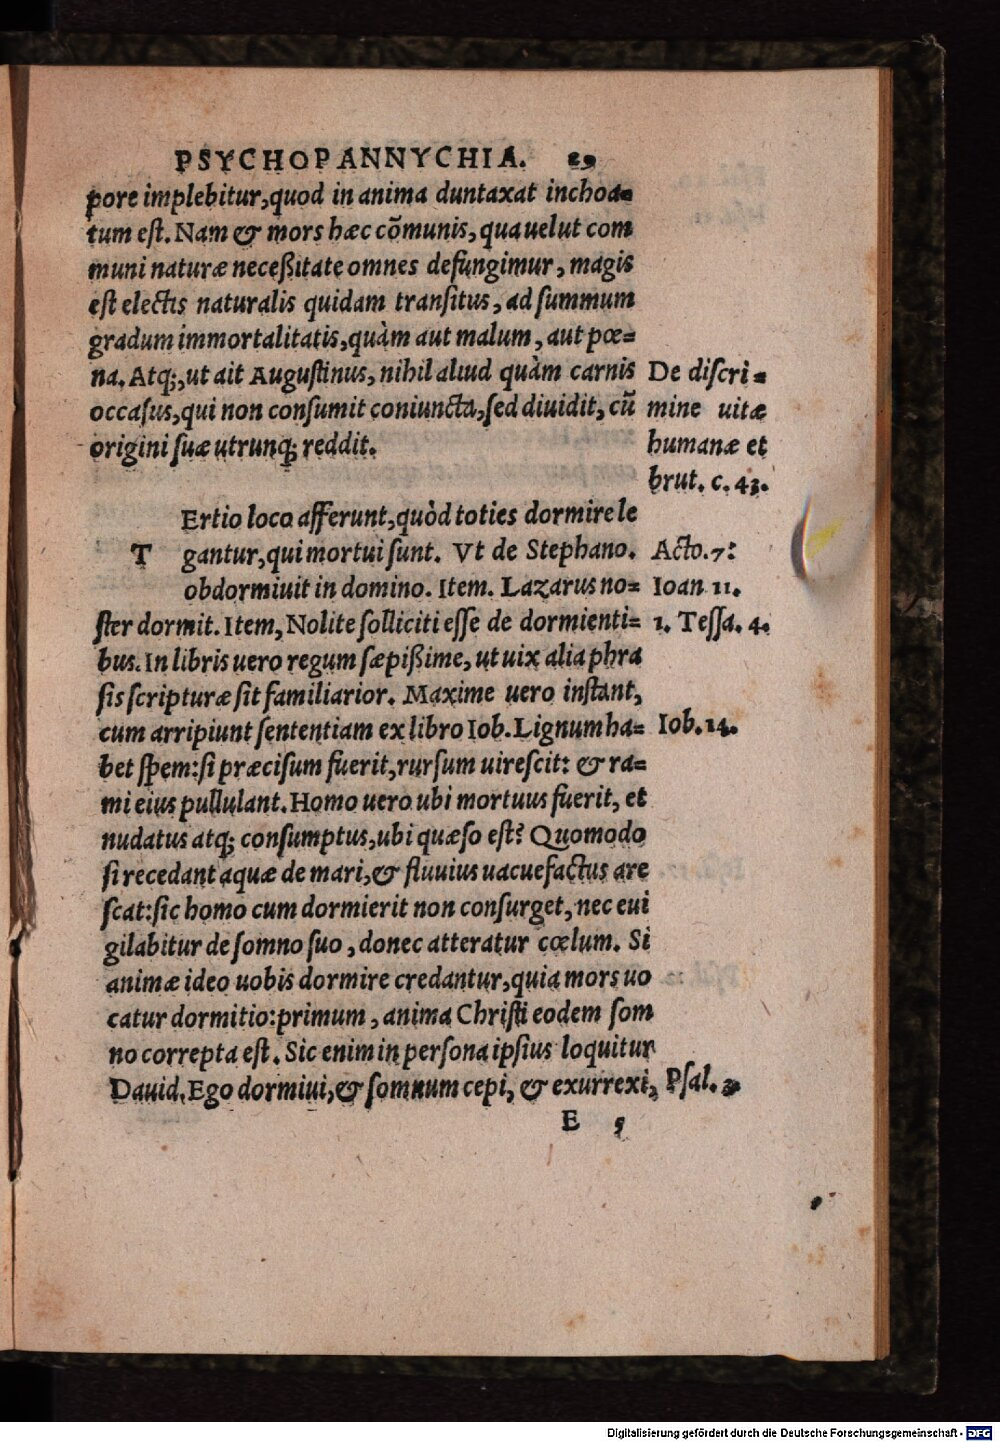 PSYCHOPANNYCHIA. 89
pore implebitur, quod in anima duntaxat inchoa-
tum est. Nam & mors hæc cõmunis, qua uelut com
muni naturæ neceßitate omnes defungimur, magis
est electis naturalis quidam transitus, ad summum
gradum immortalitatis, quàm aut malum, aut pœ-
na. Atq;, ut ait Augustinus, nihil aliud quàm carnis
occasus, qui non consumit coniuncta, sed diuidit, cũ
origini suæ utrunq; reddit.
De discri-
mine uitæ
humanæ et
brut. c. 43.
Ertio loco afferunt, quòd toties dormire le
T gantur, qui mortui sunt. Vt de Stephano. Acto. 7:
obdormiuit in domino. Item. Lazarus no- Ioan 11.
ster dormit. Item, Nolite solliciti esse de dormienti- 1. Tessa. 4.
bus. In libris uero regum sæpißime, ut uix alia phra
sis scripturæ sit familiarior. Maxime uero instant,
cum arripiunt sententiam ex libro Iob. Lignum ha- Iob. 14.
bet spem: si præcisum fuerit, rursum uirescit: & ra-
mi eius pullulant. Homo uero ubi mortuus fuerit, et
nudatus atq; consumptus, ubi quæso est? Quomodo
si recedant aquæ de mari, & fluuius uacuefactus are
scat: sic homo cum dormierit non consurget, nec eui
gilabitur de somno suo, donec atteratur cœlum. Si
animæ ideo uobis dormire credantur, quia mors uo
catur dormitio: primum, anima Christi eodem som
no correpta est. Sic enim in persona ipsius loquitur
Dauid. Ego dormiui, & somnum cepi, & exurrexi, Psal. 3.
E 5
Digitalisierung gefördert durch die Deutsche Forschungsgemeinschaft - DFG